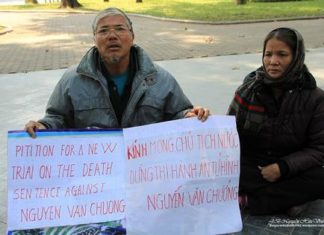 PITITION FOR A NEW
TRIAL ON THE DEATH
SENTENCE AGAINST
NGUYEN VAN CHUONG
KÍNH MONG CHỦ TỊCH NƯỚC
DỪNG THI HÀNH ÁN TỬ HÌNH
NGUYỄN VĂN CHƯỞNG